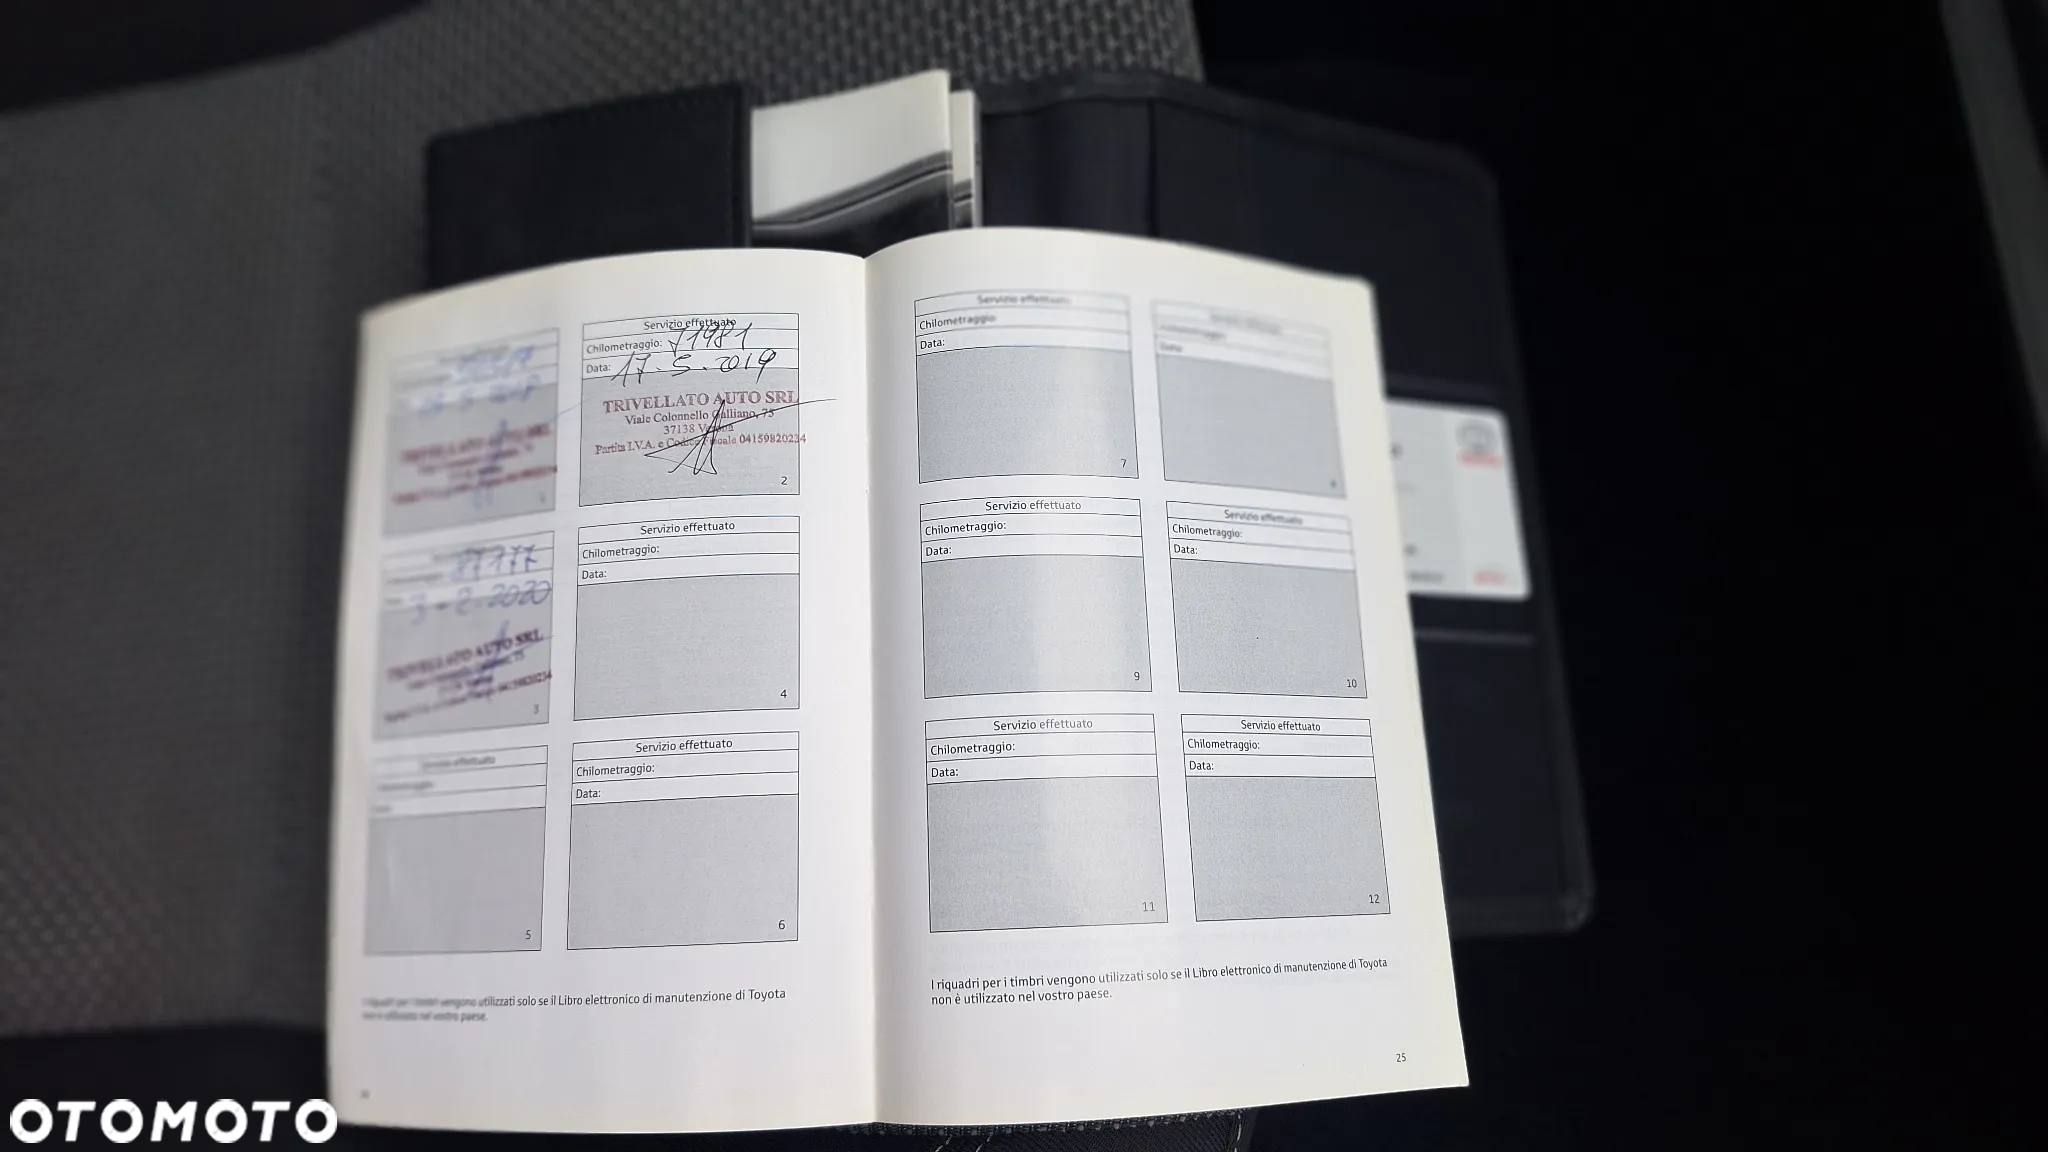 Servizio effettuato
Chilometraggio: 71981
Data: 17.5.2019
TRIVELLATO AUTO SRL
Viale Colonnello Galliano, 75
37138 Verona
Partita I.V.A. e Codice Fiscale 04159820234
2
TRIVELLATO AUTO SRL
1
87777
3-2.2020
TRIVELLATO AUTO SRL
04159820234
3
Servizio effettuato
Chilometraggio:
Data:
4
Servizio effettuato
5
Servizio effettuato
Chilometraggio:
Data:
6
I riquadri per i timbri vengono utilizzati solo se il Libro elettronico di manutenzione di Toyota
non è utilizzato nel vostro paese.
Servizio effettuato
Chilometraggio
Data:
7
Servizio effettuato
Chilometraggio:
Data:
9
Servizio effettuato
Chilometraggio:
Data:
10
Servizio effettuato
Chilometraggio:
Data:
11
Servizio effettuato
Chilometraggio:
Data:
12
I riquadri per i timbri vengono utilizzati solo se il Libro elettronico di manutenzione di Toyota
non è utilizzato nel vostro paese.
25
OTOMOTO